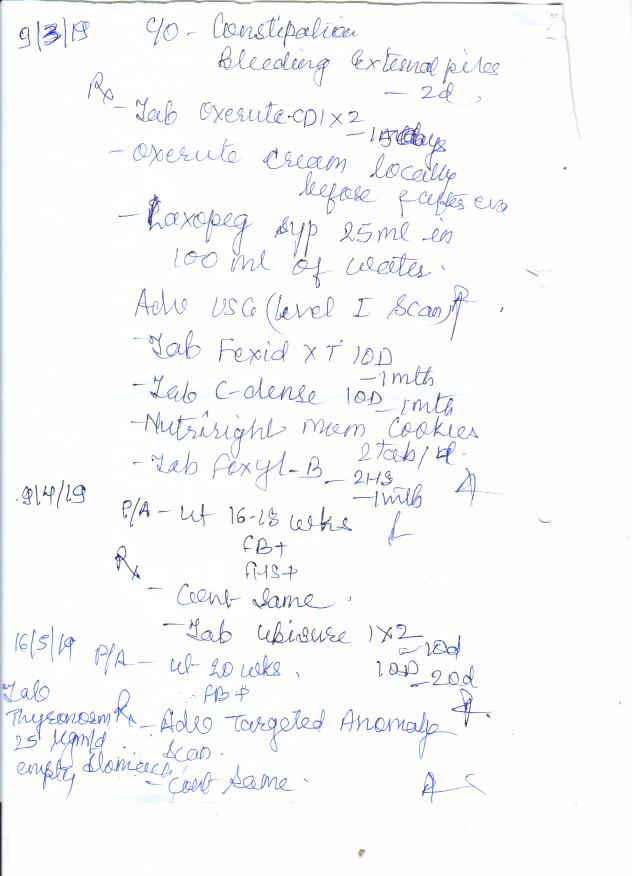 9/3/19 C/O - Constipation
Bleeding External piles
- 2d
Rx - Tab Oxerute-CD 1 x 2
- 15 days
- Oxerute cream locally
before & after
- Laxopeg syp 25ml in
100 ml of water.
Adv USG (Level I Scan)
- Tab Fexid XT 1OD
- 1 mth
- Tab C-dense 1OD
- 1 mth
- Nutriright Mom Cookies
2 tab/d.
- Tab Foxyl-B - 2HS
- 1 mth
9/4/19
P/A - ut 16-18 wks
FB+
FHS+
Rx
- Cont same.
- Tab Ubisure 1x2
- 10d
1OD
- 20d
16/5/19 P/A - ut 20 wks.
FB+
Tab
Thyronorm
25 µgm/d
empty stomach
Rx - Adv Targeted Anomaly
Scan.
- Cont Same.